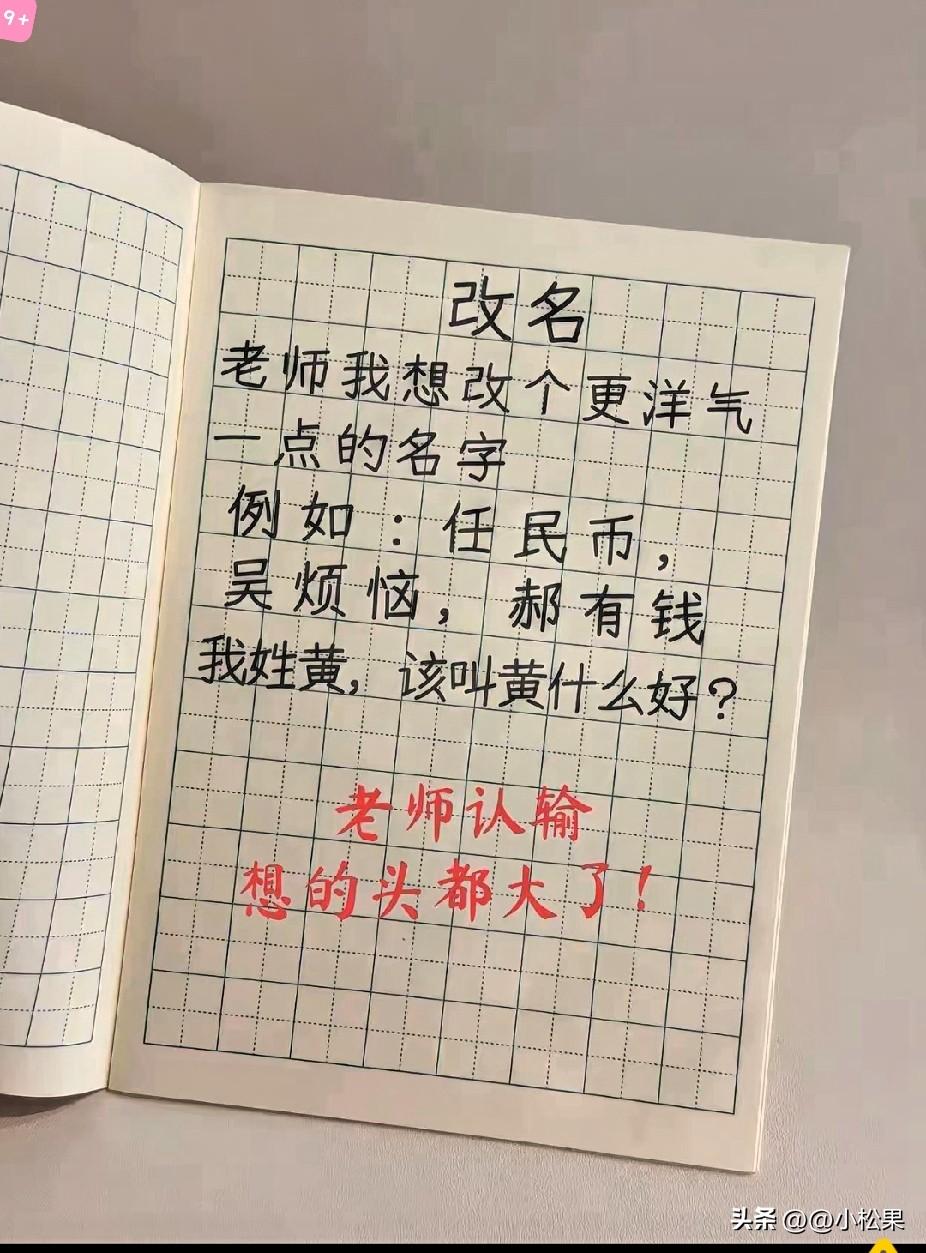 9+
改名
老师我想改个更洋气
一点的名字
例如：任民币，
吴烦恼，郝有钱
我姓黄，该叫黄什么好？
老师认输
想的头都大了！
头条 @@小松果